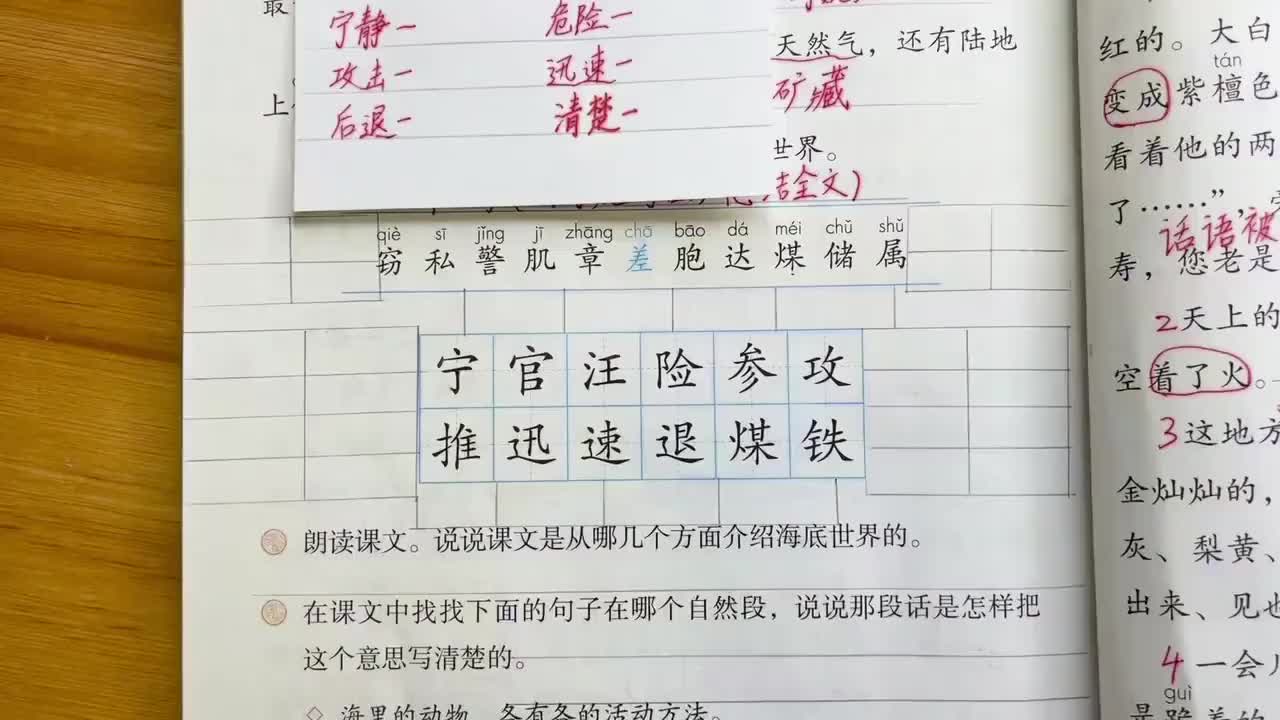 宁静— 危险—
攻击— 迅速—
后退— 清楚—
天然气，还有陆地
矿藏
上
世界。
结全文）
qiè sī jǐng jī zhāng chā bāo dá méi chǔ shǔ
窃 私 警 肌 章 差 胞 达 煤 储 属
宁 官 汪 险 参 攻
推 迅 速 退 煤 铁
朗读课文。说说课文是从哪几个方面介绍海底世界的。
在课文中找找下面的句子在哪个自然段，说说那段话是怎样把
这个意思写清楚的。
◇ 海里的动物，各有各的活动方法。
红的。大白
tán
变成紫檀色
看着他的两
了……”，
话语被
寿，您老是
2天上的
空着了火。
3这地方
金灿灿的，
灰、梨黄、
出来、见也
4一会儿
guì
是跪着的